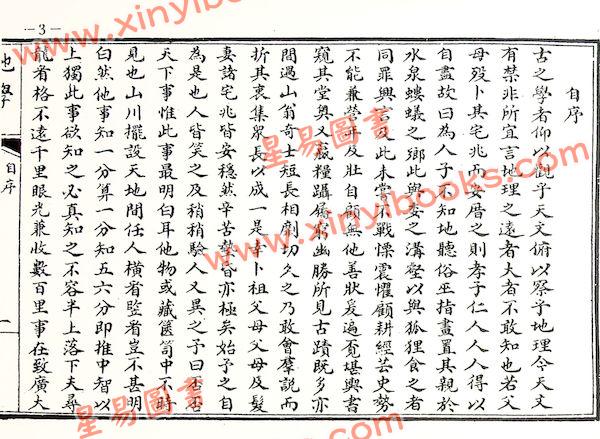 www.xinyibooks.com
-3-
自序
古之學者仰以觀乎天文俯以察乎地理今天文
有禁非所宜言地理之遠者大者不敢知也若父
母歿卜其宅兆而安厝之則孝子仁人人人得以
自盡故曰為人子不知地聽俗巫指畫置其親於
水泉螻蟻之鄉此與委之溝壑以與狐狸食之者
同罪興言及此未嘗不戰慄震懼顧耕經芸史勢
不能兼營及壯自顧無他善狀爰遍覓堪輿書
窺其堂奧又贏糧躡屩窮幽勝所見古蹟既多亦
間遇山翁奇士短長相劘切久之乃敢會羣說而
折其衷集眾長以成一是幸卜祖父母父母及髮
妻諸宅兆皆安穩然辛苦勞瘁亦極矣始予之自
為是也人皆笑之及稍稍驗人又異之予曰否否
天下事惟此事最明白耳他物或藏篋笥中不時
見也山川擺設天地間任人橫看竪看豈不甚明
白然他事知一分算一分知五六分即推中智以
上獨此事欲知之必真知之不容半上落下夫尋
龍看格不遠千里眼光兼收數百里事在致廣大
地學
自序
一
星易圖書
www.xinyibooks.com
星易圖書
www.xinyibooks.com
星易圖書